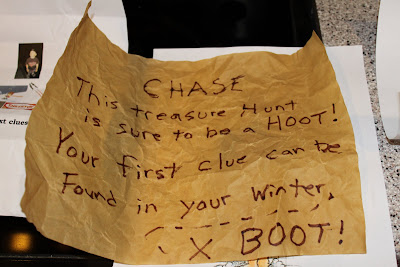 CHASE
This treasure Hunt
is sure to be a HOOT!
Your first clue can be
Found in your Winter,
X BOOT!
xt clues